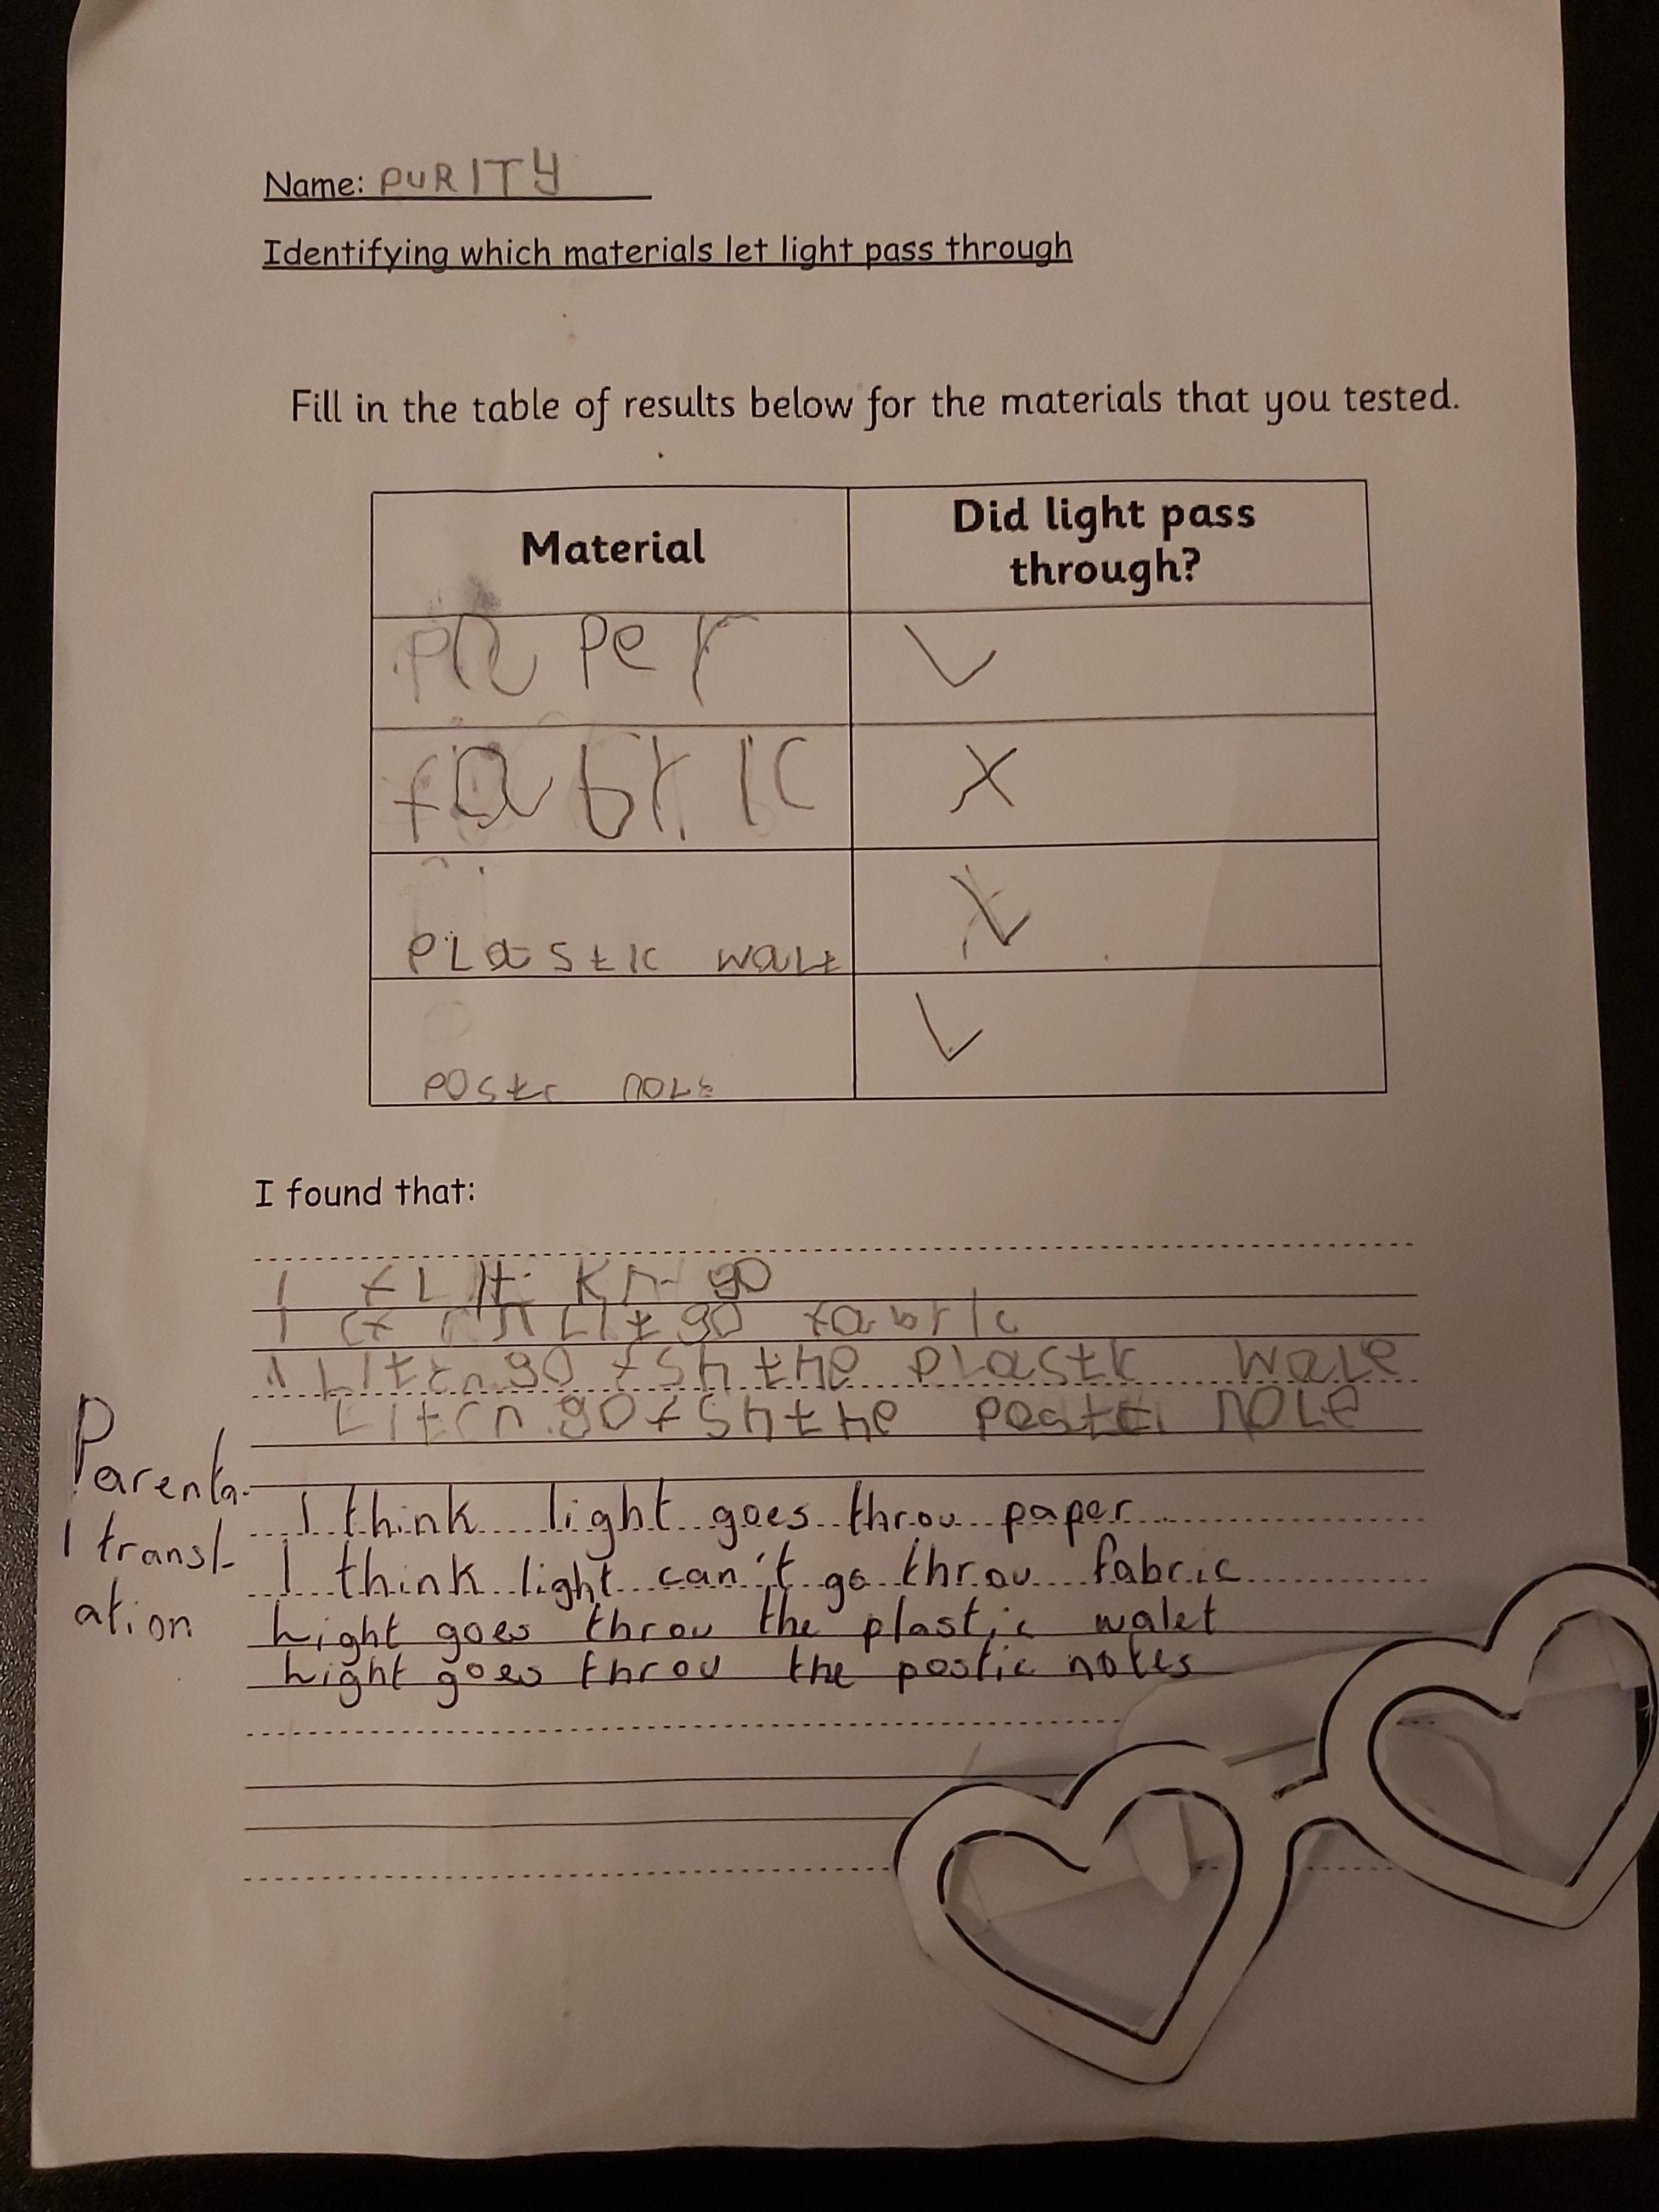 Name: PURITY
Identifying which materials let light pass through
Fill in the table of results below for the materials that you tested.
Material
Did light pass
through?
paper
fabric
PLastic walt
postc nole
I found that:
I go
I go fabric
go the PLastc wale
go the nole
Parenta-
l transl-
ation
I think light goes throu paper
I think light can't go throu fabric
Light goes throu the plastic walet
Light goes throu the postic notes